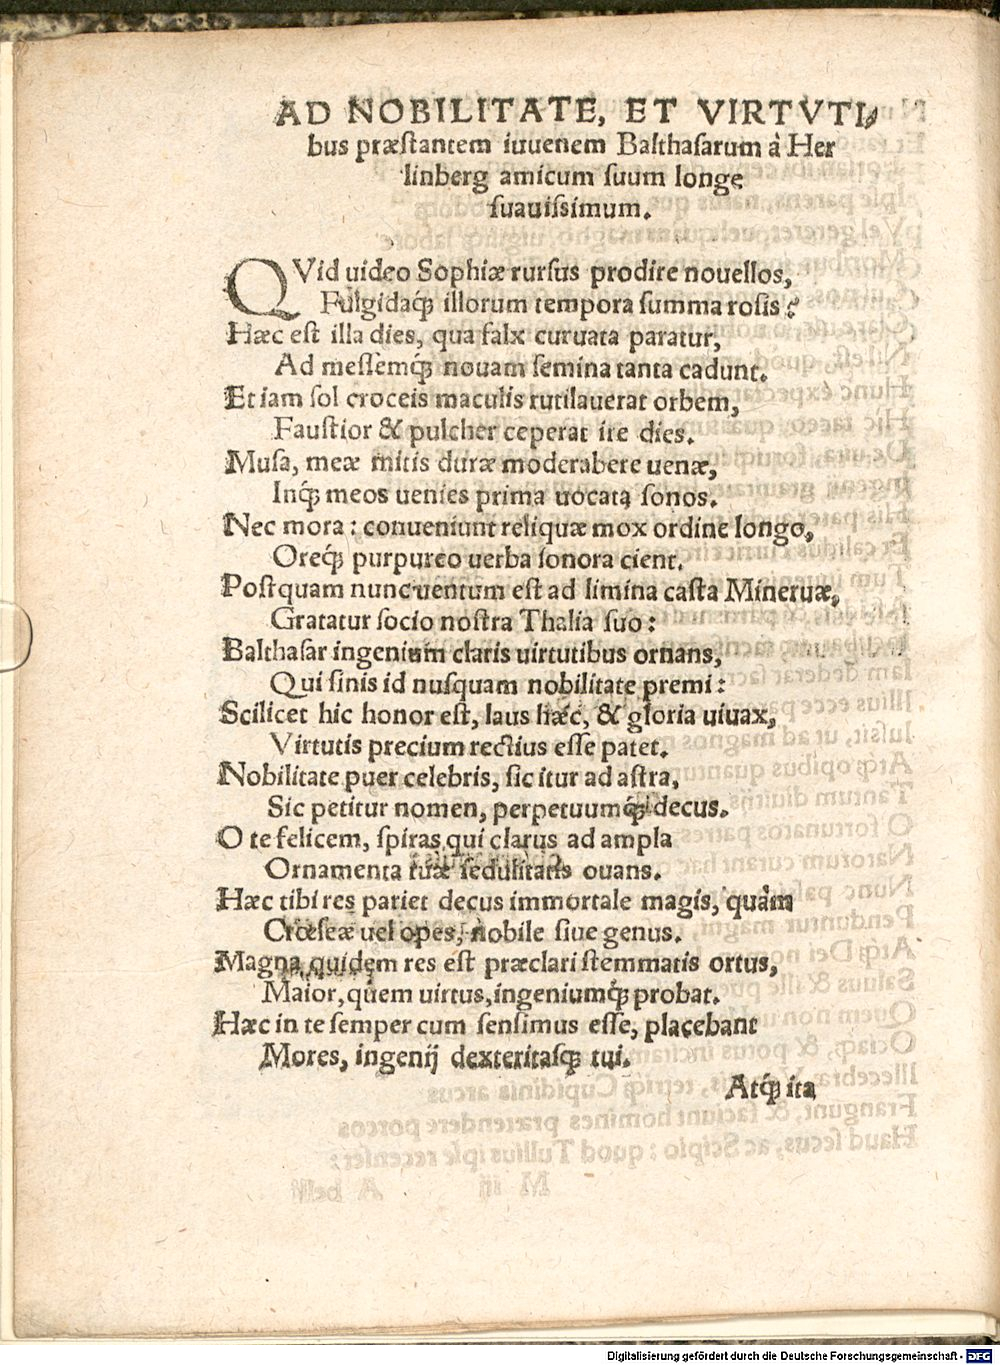 AD NOBILITATE, ET VIRTVTI-
bus præstantem iuuenem Balthasarum à Her
linberg amicum suum longe
suauissimum.
QVid uideo Sophiæ rursus prodire nouellos,
Fulgidaq́; illorum tempora summa rosis?
Hæc est illa dies, qua falx curuata paratur,
Ad messemq́; nouam semina tanta cadunt.
Et iam sol croceis maculis rutilauerat orbem,
Faustior & pulcher ceperat ire dies.
Musa, meæ mitis duræ moderabere uenæ,
Inq́; meos uenies prima uocata sonos.
Nec mora: conueniunt reliquæ mox ordine longo,
Oreq́; purpureo uerba sonora cient.
Postquam nunc uentum est ad limina casta Mineruæ,
Gratatur socio nostra Thalia suo:
Balthasar ingenium claris uirtutibus ornans,
Qui sinis id nusquam nobilitate premi:
Scilicet hic honor est, laus hæc, & gloria uiuax,
Virtutis precium rectius esse patet.
Nobilitate puer celebris, sic itur ad astra,
Sic petitur nomen, perpetuumq́; decus.
O te felicem, spiras qui clarus ad ampla
Ornamenta tuæ sedulitatis ouans.
Hæc tibi res pariet decus immortale magis, quàm
Crœseæ uel opes, nobile siue genus.
Magna quidem res est præclari stemmatis ortus,
Maior, quem uirtus, ingeniumq́; probat.
Hæc in te semper cum sensimus esse, placebant
Mores, ingenij dexteritasq; tui.
Atq́; ita
Digitalisierung gefördert durch die Deutsche Forschungsgemeinschaft - DFG